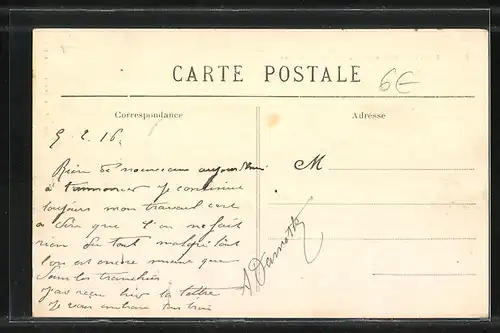 CARTE POSTALE
6€
Correspondance
Adresse
9.2.16.
Rien de nouveau aujourd'hui
à t'annoncer Je continue
toujours mon travail cest
a dire que l'on ne fait
rien du tout malgré tout
l'on est encore mieux que
dans les tranchées
J'ai reçu hier ta lettre
Je vais
M